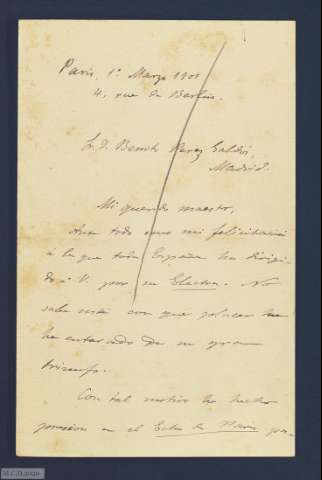 Paris, 1º Marzo 1901
4, rue de Berlin.
Sr. D. Benito Perez Galdós,
Madrid.
Mi querido maestro,
Ante todo una mi felicitación
á la que toda España ha dirigi-
do á V. por su Electra. No
sabe V. con que placer me
he enterado de su gran
triunfo.
Con tal motivo he hecho
en el Echo de Paris